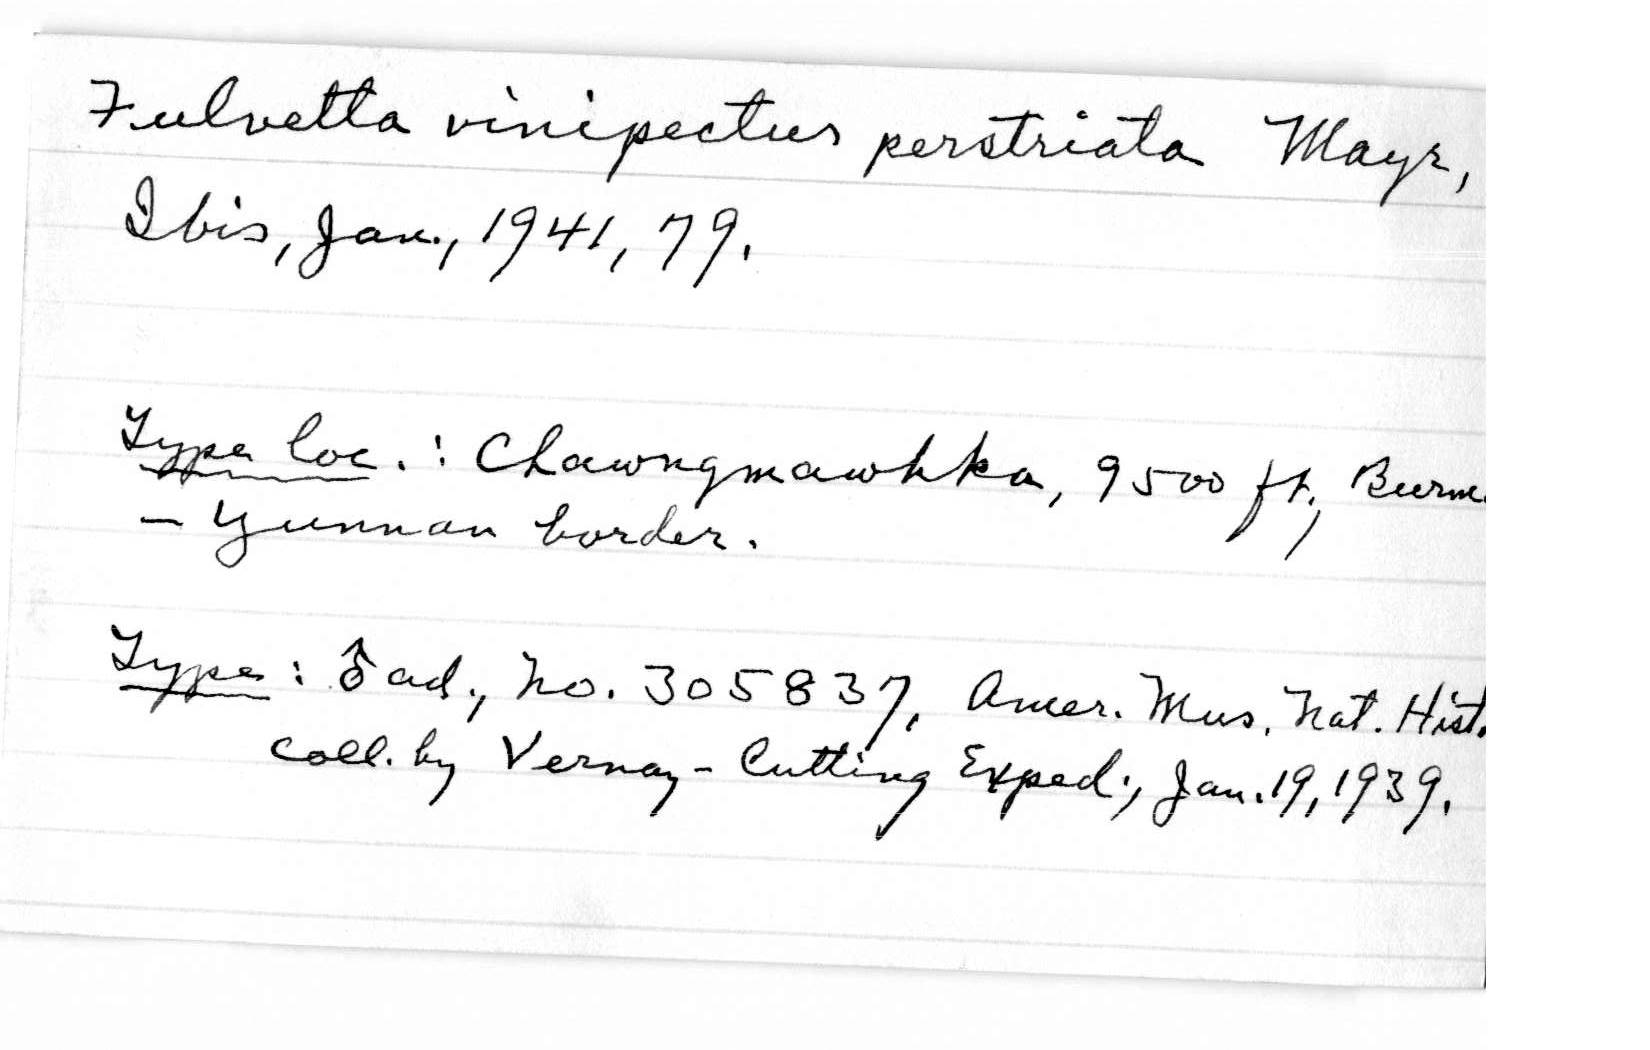 Fulvetta vinipectus perstriata Mayr,
Ibis, Jan., 1941, 79.
Type loc.: Chawngmawhka, 9500 ft., Burm
- Yunnan border.
Type: ♂ ad., No. 305837, Amer. Mus. Nat. Hist.
coll. by Vernay-Cutting Exped., Jan. 19, 1939.